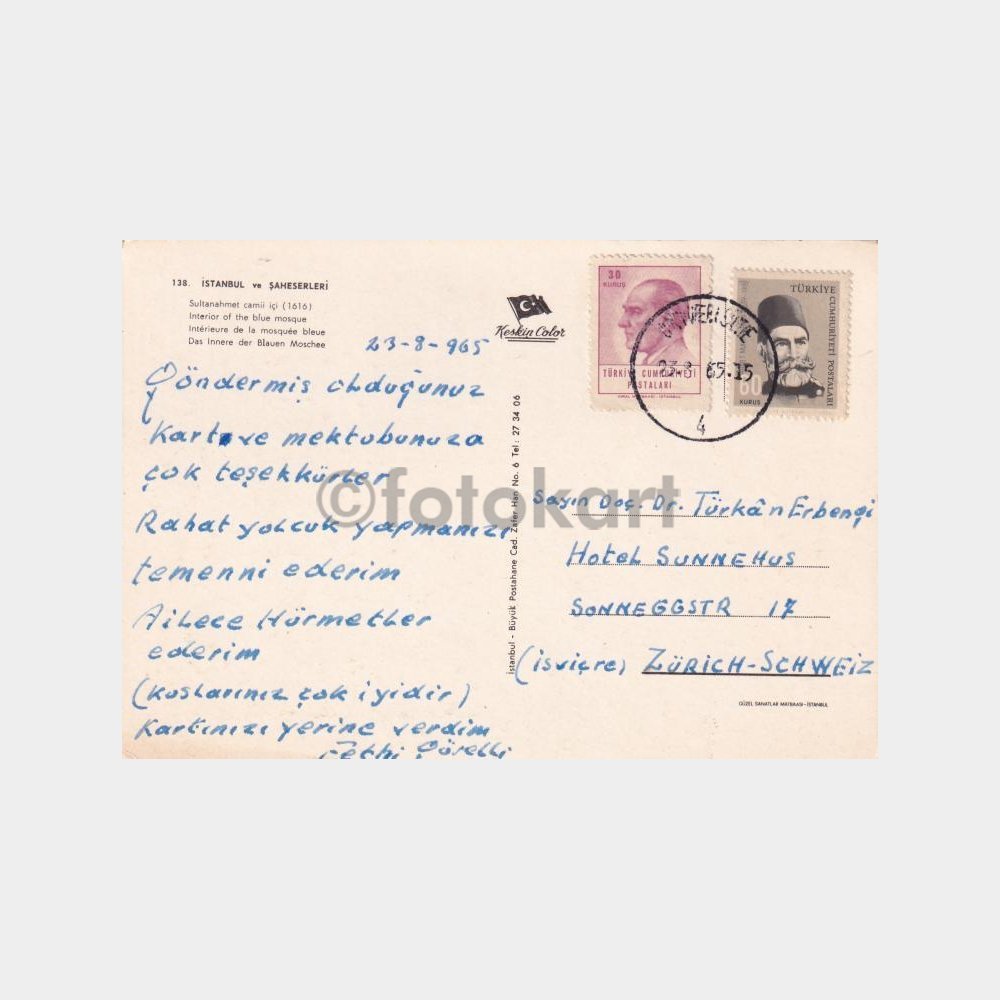 138. İSTANBUL ve ŞAHESERLERİ
Sultanahmet camii içi (1616)
Interior of the blue mosque
Intérieure de la mosquée bleue
Das Innere der Blauen Moschee
Keskin Color
23-8-965
Göndermiş olduğunuz
Kart ve mektubunuza
çok teşekkürler
Rahat yolcuk yapmanızı
temenni ederim
Ailece Hürmetler
ederim
(kuşlarınız çok iyidir)
Kartınızı yerine verdim
Fethi Görelli
İstanbul - Büyük Postahane Cad. Zafer Han No. 6 Tel: 27 34 06
30
KURUŞ
TÜRKİYE CUMHURİYETİ
POSTALARI
TÜRKİYE
CUMHURİYETİ POSTALARI
60
KURUŞ
23-8 65-15
4
Sayın Doç. Dr. Türkân Erbengi
Hotel SUNNEHUS
SONNEGGSTR 17
(isviçre) ZÜRICH-SCHWEIZ
GÜZEL SANATLAR MATBAASI-İSTANBUL
©fotokart